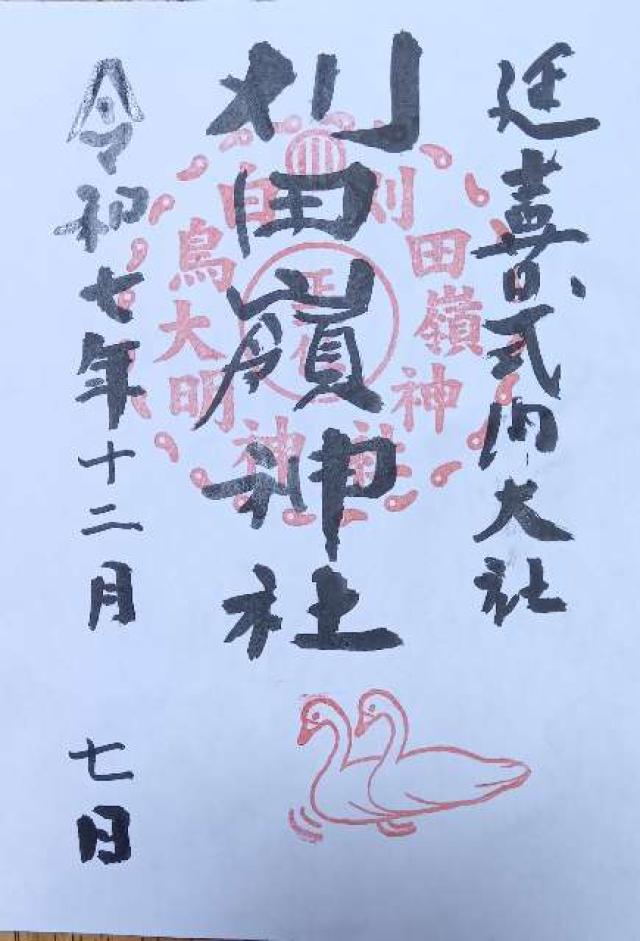 延喜式内大社
刈田嶺神社
刈田嶺神社
白鳥大明神
正一位
令和七年十二月 七日